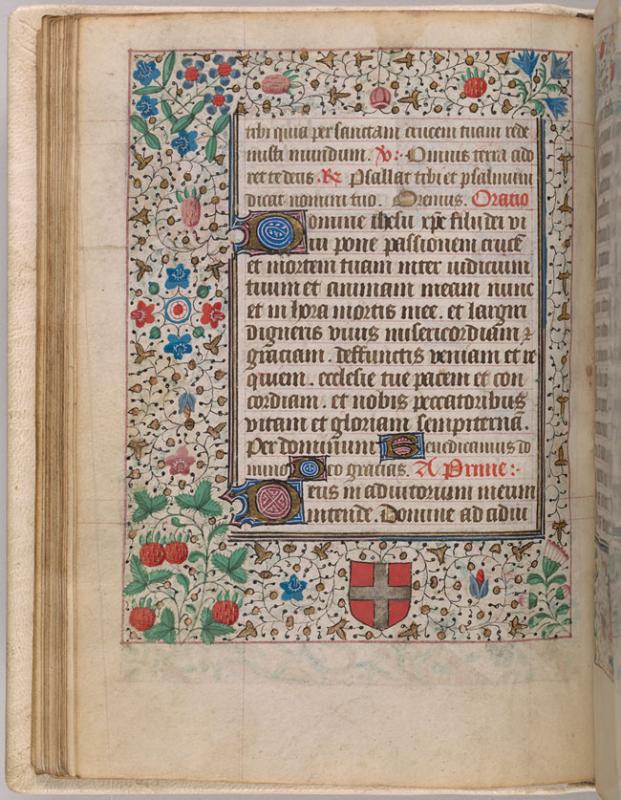 tibi quia per sanctam crucem tuam rede
misti mundum. V̷:· Omnis terra ado
ret te deus. R̷ Psallat tibi et psalmum
dicat nomini tuo. Oremus. Oratio
Domine ihesu xpe fili dei vi
ui pone passionem crucē
et mortem tuam inter iudicium
tuum et animam meam nunc
et in hora mortis mee. et largiri
digneris viuis misericordiam ⁊
graciam. deffunctis veniam et re
quiem. ecclesie tue pacem et con
cordiam. et nobis peccatoribus
vitam et gloriam sempiternā.
Per dominum Benedicamus do
mino Deo gracias. A Prime:·
Deus in adiutorium meum
intende. Domine ad adiu